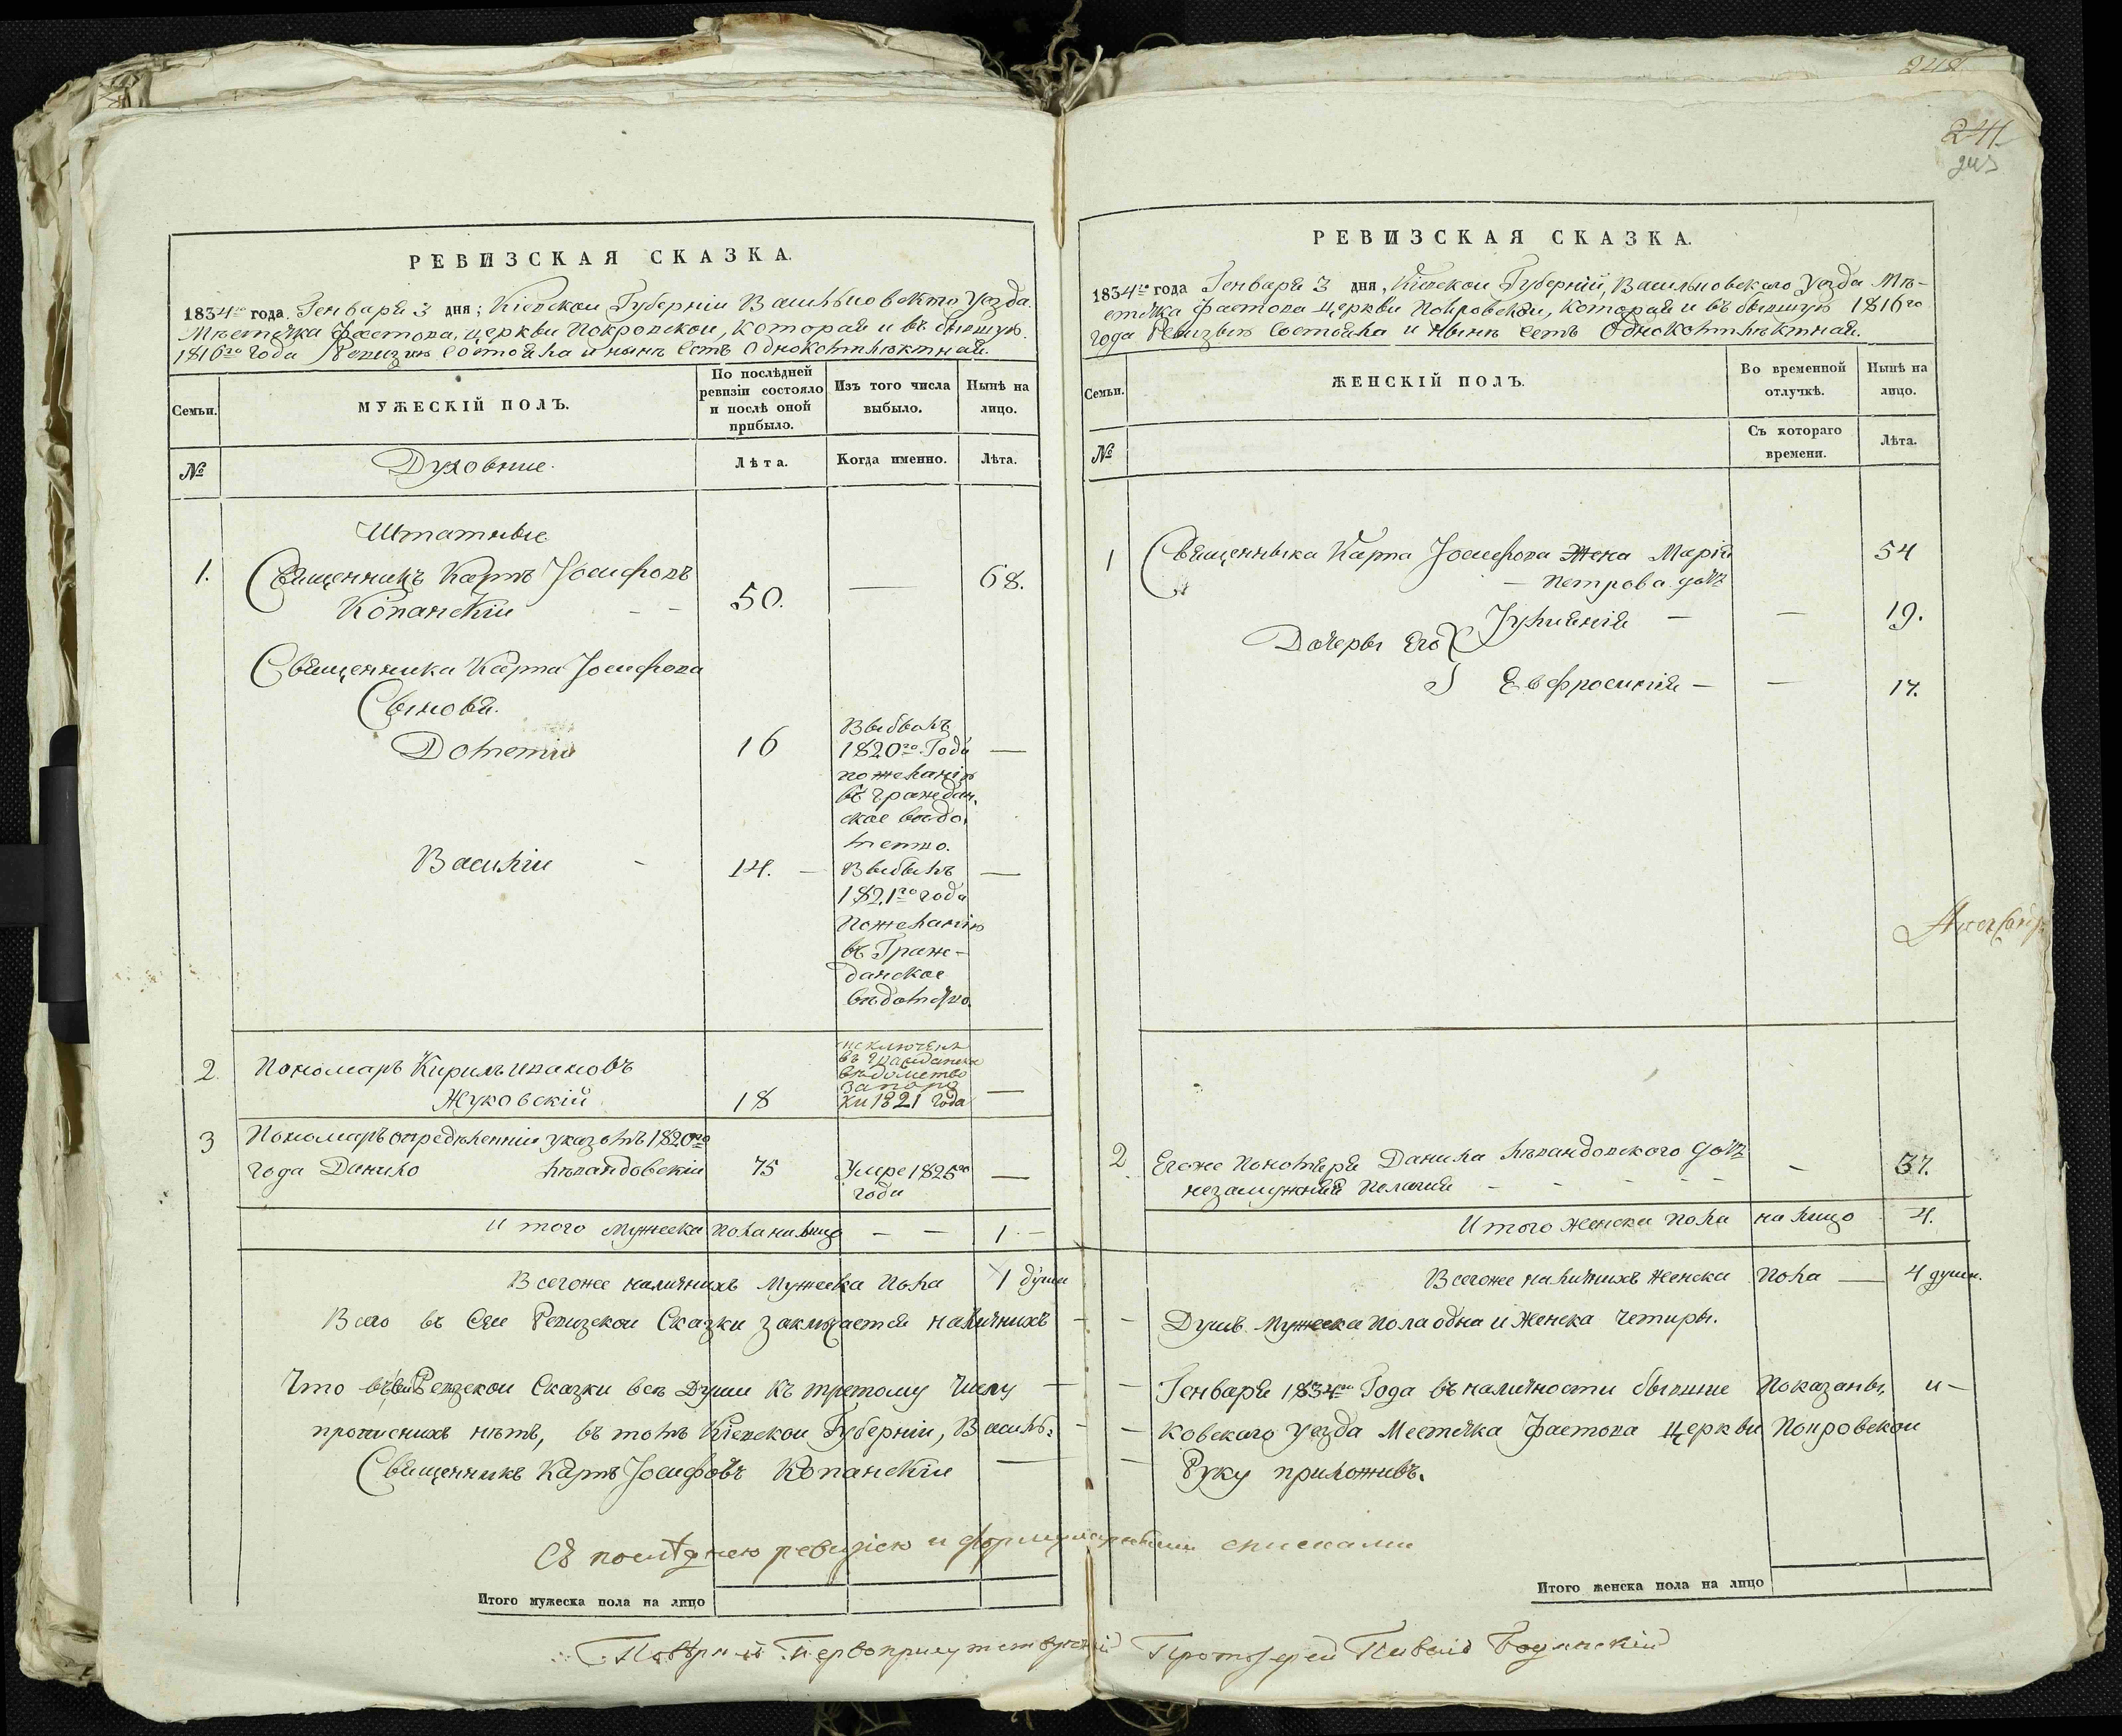 РЕВИЗСКАЯ СКАЗКА.
1834го года Генваря 3 дня; Кіевской Губерніи Васильковского Уезда
Мѣстечка Фастова, церкви Покровской, которая и въ бывшую
1816го года Ревизію состояла и нынѣ есть однокомплектная.
Семьи.
МУЖЕСКІЙ ПОЛЪ.
По послѣдней
ревизіи состояло
и послѣ оной
прибыло.
Изъ того числа
выбыло.
Нынѣ на
лицо.
№
Духовные.
Лѣта.
Когда именно.
Лѣта.
Штатные
1. Священникъ Карпъ Іосифовъ
Копанскій - - 50. — 68.
Священника Карпа Іосифова
Сыновя.
Дометій 16 Выбылъ
1820го Года —
пожеланію
въ граждан,
ское ведо,
мство.
Василій - 14. — Выбылъ —
1821го года
Пожеланію
въ Граж-
данское
ведомство.
2. Пономаръ Кирилъ Ивановъ
Жуковскій 18
исключенъ
въ гражданское
вѣдомство
за поро
ки 1821 года —
3 Пономаръ определенній указомъ 1820го
года Данило Левандовскій 75 Умре 1825го —
года
Итого мужеска пола налицо — — 1 -
Всегоже наличнихъ Мужеска Пола 1 душа
Всего въ Сей Ревизской Сказки заключается наличнихъ -
Что въ сей Ревизской Сказки все Души къ третому Числу —
прописнихъ нѣтъ, въ томъ Кіевской Губерніи, Василь: -
Священникъ Карпъ Іосифовъ Копанскій —
Съ последнею ревизіею и формулярными списками
Итого мужеска пола на лицо
Повѣрялъ Первоприсутствующій Протоіерей Павелъ
241
РЕВИЗСКАЯ СКАЗКА.
1834го года Генваря 3 дня, Кіевской Губерніи, Васильковскаго Уезда Мѣ-
стечка Фастова Церкви Покровской, которая и въ бывшую 1816го
года Ревизію состояла и Нынѣ есть Однокомплектная.
Семьи.
ЖЕНСКІЙ ПОЛЪ.
Во временной
отлучкѣ.
Нынѣ на
лицо.
№
Съ котораго
времени.
Лѣта.
1 Священника Карпа Іосифова Жена Марія 54
— Петрова дочь
Дочеры Его Іуліянія — — 19.
Евфросинія — — 17.
2 Егоже Пономаря Данила Левандовского дочь
незамужняя Пелагия - - - - - 37.
Итого женска пола налицо 4.
Всегоже наличнихъ женска Пола — 4 души.
- Душъ Мужеска пола одна и Женска Четиры.
- Генваря 1834го Года въ наличности бывшие Показаны, и -
- ковскаго уезда Местечка Фастова Церкви Покровской
- Руку приложивъ.
Итого женска пола на лицо